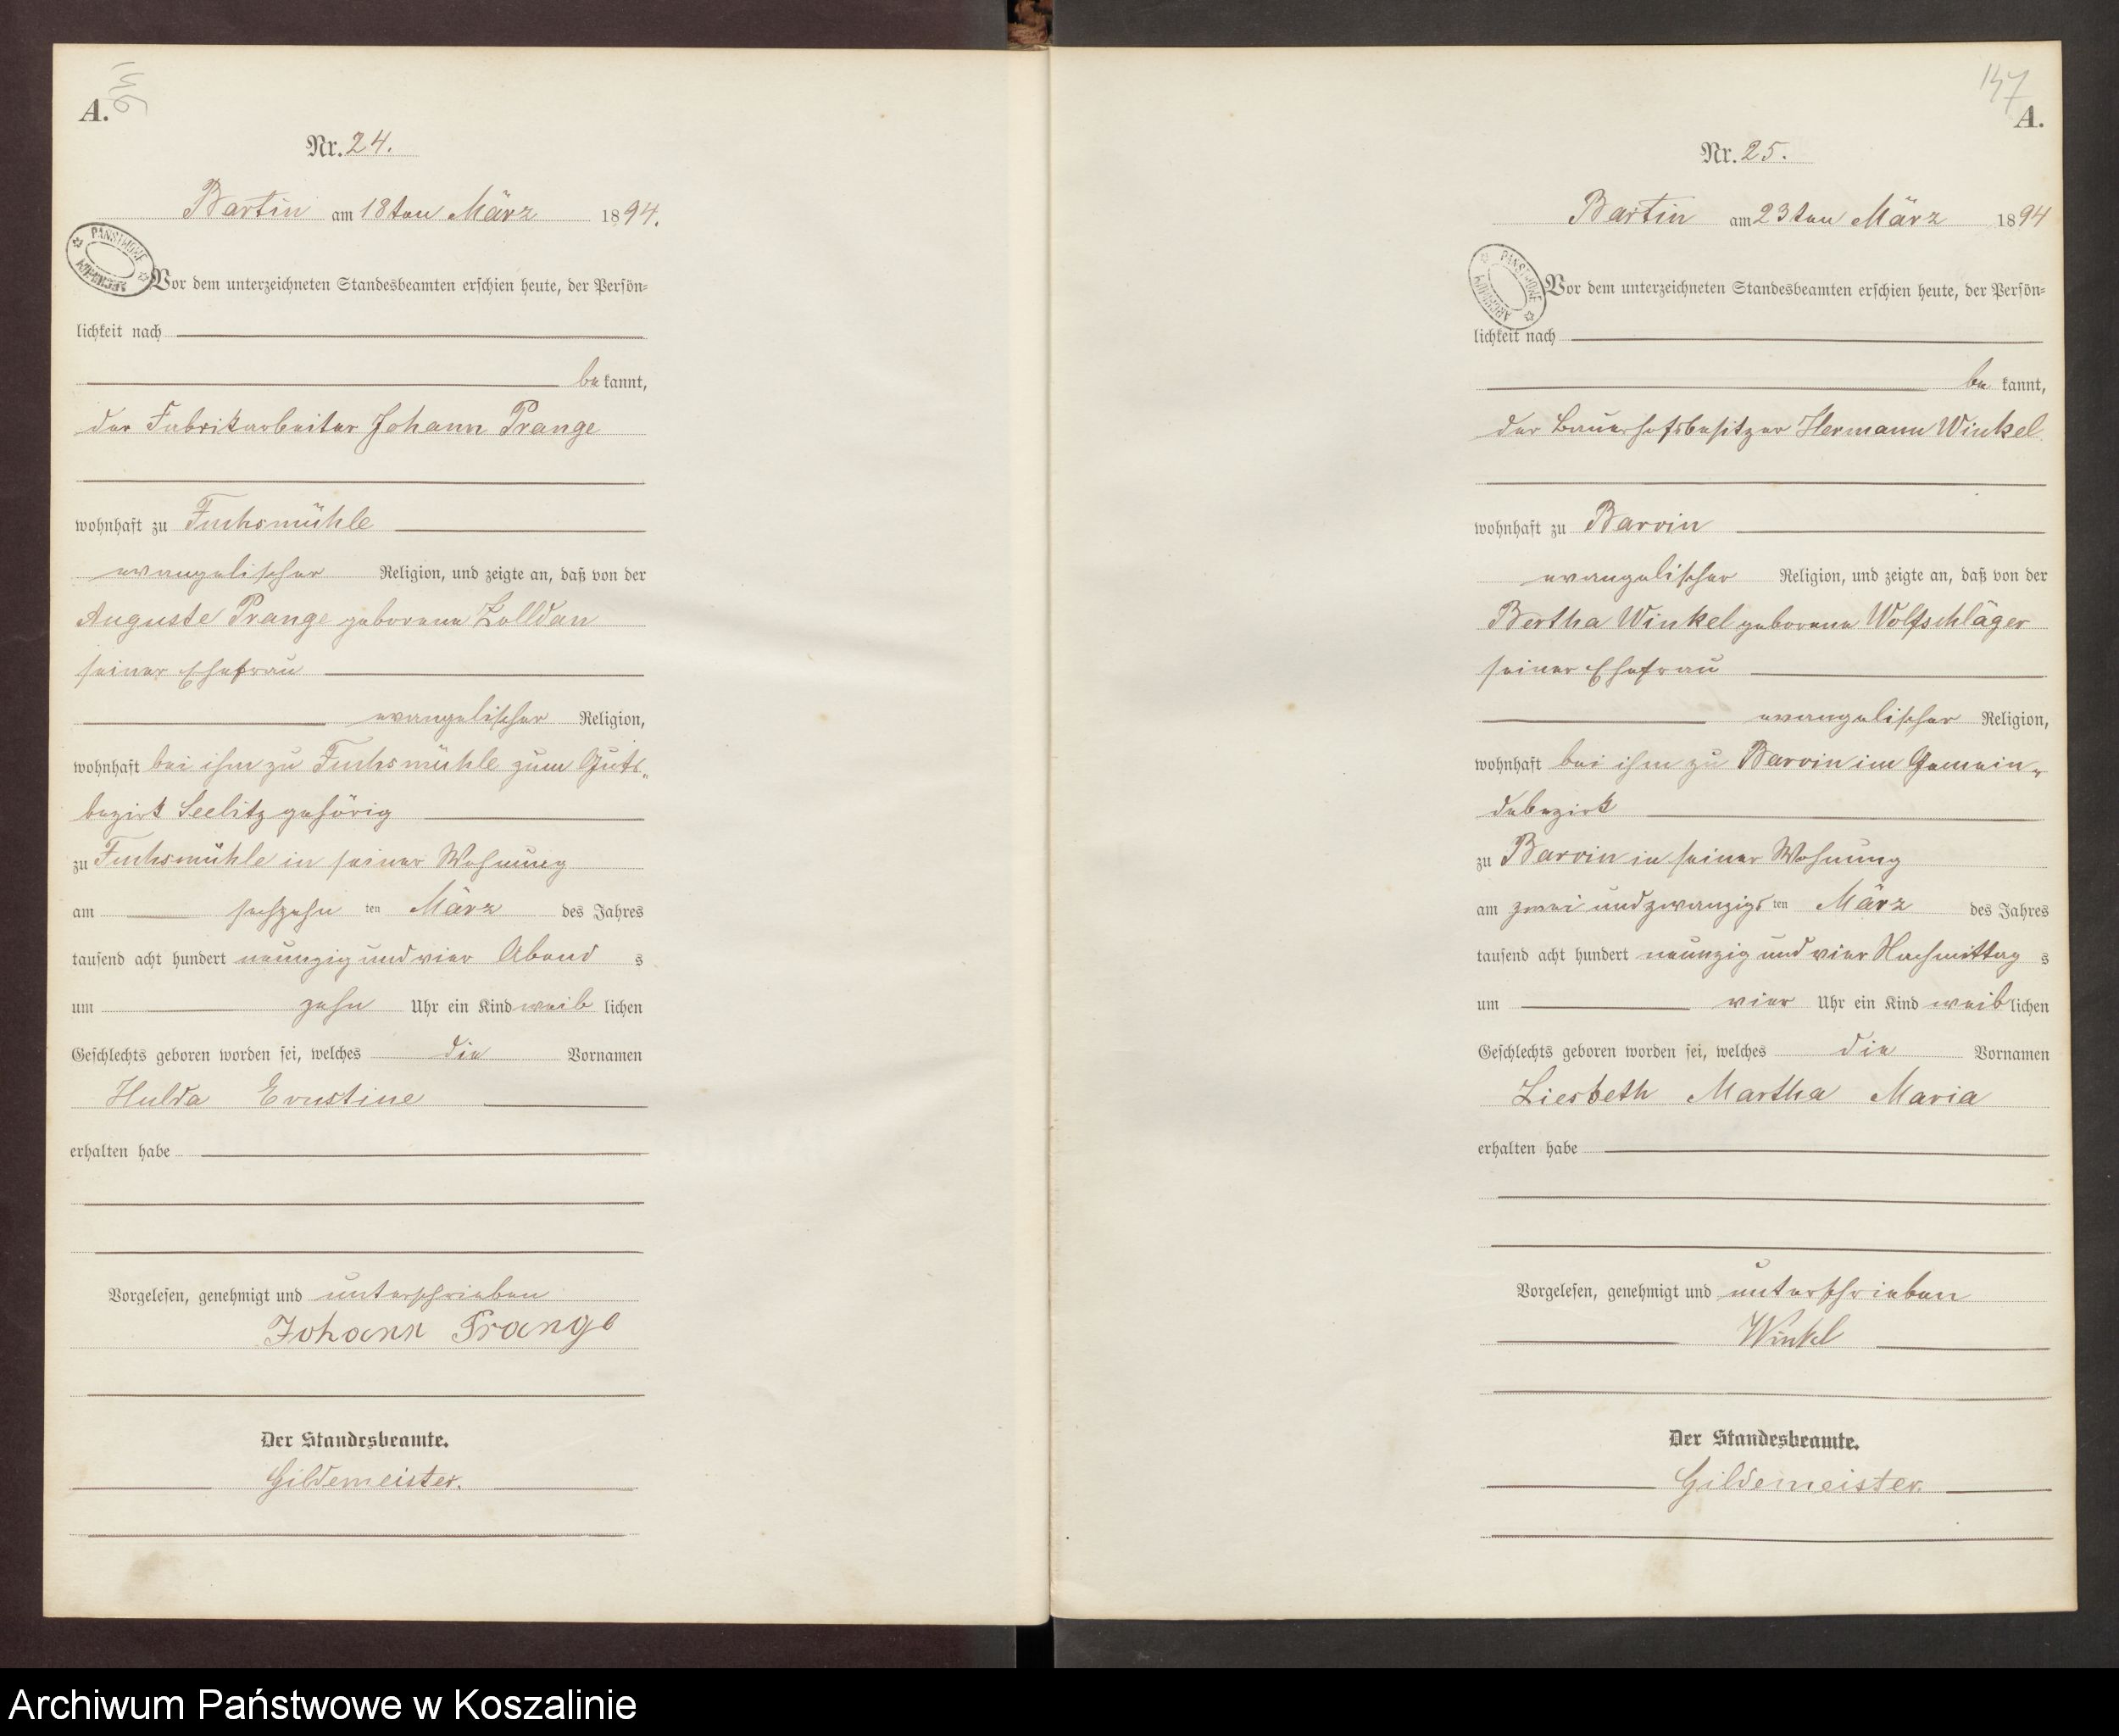 146
A.
Nr. 24.
Bartin am 18ten März 1894.
PANSTWOWE ARCHIWUM
Vor dem unterzeichneten Standesbeamten erschien heute, der Persön-
lichkeit nach
be kannt,
der Fabrikarbeiter Johann Prange
wohnhaft zu Fuchsmühle
evangelischer Religion, und zeigte an, daß von der
Auguste Prange geborene Zolldan
seiner Ehefrau
evangelischer Religion,
wohnhaft bei ihm zu Fuchsmühle zum Guts-
bezirk Seelitz gehörig
zu Fuchsmühle in seiner Wohnung
am sechzehn ten März des Jahres
tausend acht hundert neunzig und vier Abend s
um zehn Uhr ein Kind weib lichen
Geschlechts geboren worden sei, welches die Vornamen
Hulda Ernstine
erhalten habe
Vorgelesen, genehmigt und unterschrieben
Johann Prange
Der Standesbeamte.
Gildemeister.
147
A.
Nr. 25.
Bartin am 23ten März 1894
PANSTWOWE ARCHIWUM
Vor dem unterzeichneten Standesbeamten erschien heute, der Persön-
lichkeit nach
be kannt,
der Bauerhofsbesitzer Hermann Winkel
wohnhaft zu Barvin
evangelischer Religion, und zeigte an, daß von der
Bertha Winkel geborene Wolfschläger
seiner Ehefrau
evangelischer Religion,
wohnhaft bei ihm zu Barvin im Gemein-
debezirk
zu Barvin in seiner Wohnung
am zwei und zwanzigs ten März des Jahres
tausend acht hundert neunzig und vier Nachmittag s
um vier Uhr ein Kind weib lichen
Geschlechts geboren worden sei, welches die Vornamen
Liesbeth Martha Maria
erhalten habe
Vorgelesen, genehmigt und unterschrieben
Winkel
Der Standesbeamte.
Gildemeister.
Archiwum Państwowe w Koszalinie